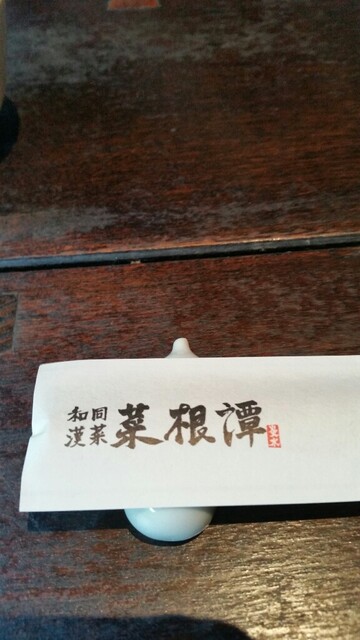 和漢同菜
菜根譚